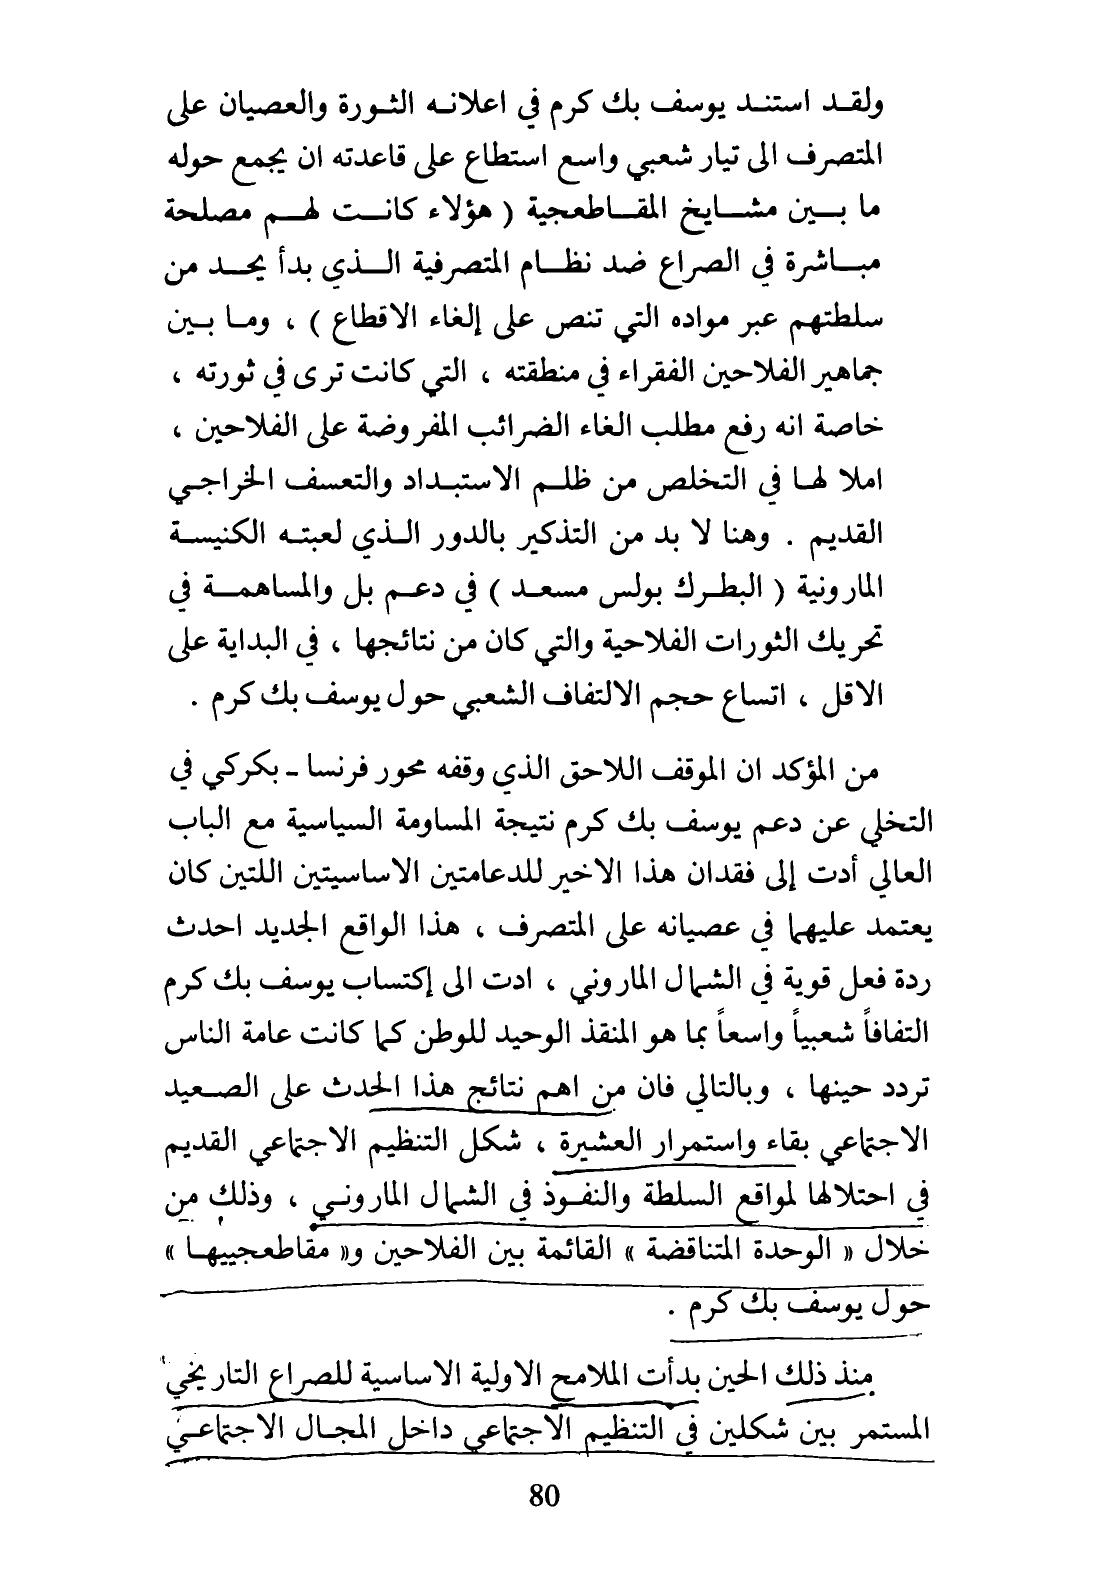 ولقد استند يوسف بك كرم في اعلانه الثورة والعصيان على
المتصرف الى تيار شعبي واسع استطاع على قاعدته ان يجمع حوله
ما بين مشايخ المقاطعجية ( هؤلاء كانت لهم مصلحة
مباشرة في الصراع ضد نظام المتصرفية الذي بدأ يحد من
سلطتهم عبر مواده التي تنص على إلغاء الاقطاع ) ، وما بين
جماهير الفلاحين الفقراء في منطقته ، التي كانت ترى في ثورته ،
خاصة انه رفع مطلب الغاء الضرائب المفروضة على الفلاحين ،
املا لها في التخلص من ظلم الاستبداد والتعسف الخراجي
القديم . وهنا لا بد من التذكير بالدور الذي لعبته الكنيسة
المارونية ( البطرك بولس مسعد ) في دعم بل والمساهمة في
تحريك الثورات الفلاحية والتي كان من نتائجها ، في البداية على
الاقل ، اتساع حجم الالتفاف الشعبي حول يوسف بك كرم .
من المؤكد ان الموقف اللاحق الذي وقفه محور فرنسا - بكركي في
التخلي عن دعم يوسف بك كرم نتيجة المساومة السياسية مع الباب
العالي أدت إلى فقدان هذا الاخير للدعامتين الاساسيتين اللتين كان
يعتمد عليهما في عصيانه على المتصرف ، هذا الواقع الجديد احدث
ردة فعل قوية في الشمال الماروني ، ادت الى إكتساب يوسف بك كرم
التفافاً شعبياً واسعاً بما هو المنقذ الوحيد للوطن كما كانت عامة الناس
تردد حينها ، وبالتالي فان من اهم نتائج هذا الحدث على الصعيد
الاجتماعي بقاء واستمرار العشيرة ، شكل التنظيم الاجتماعي القديم
في احتلالها لمواقع السلطة والنفوذ في الشمال الماروني ، وذلك من
خلال « الوحدة المتناقضة » القائمة بين الفلاحين و« مقاطعجييها »
حول يوسف بك كرم .
منذ ذلك الحين بدأت الملامح الاولية الاساسية للصراع التاريخي
المستمر بين شكلين في التنظيم الاجتماعي داخل المجال الاجتماعي
80